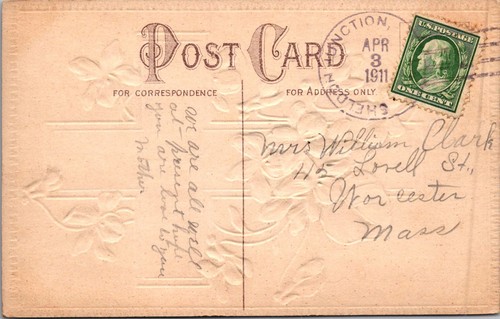 POST CARD
FOR CORRESPONDENCE
FOR ADDRESS ONLY
SHELDON JUNCTION,
APR
3
1911
U.S. POSTAGE
ONE CENT
We are all well
at present hope
you are
Mother
Mrs William Clark
45 Lovell St.,
Worcester
Mass